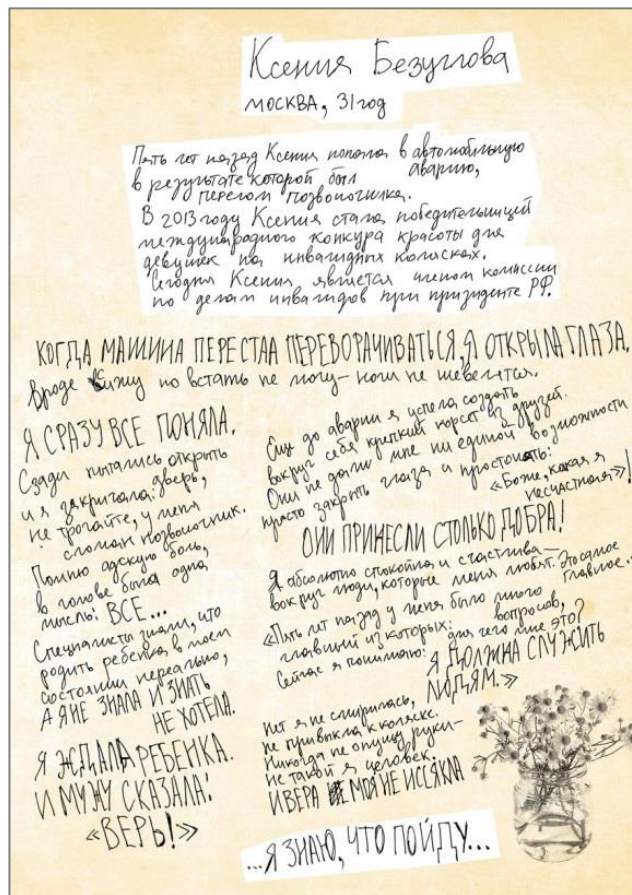 Ксения Безуглова
МОСКВА, 31 год
Пять лет назад Ксения попала в автомобильную
в результате которой был аварию,
перелом позвоночника.
В 2013 году Ксения стала победительницей
международного конкура красоты для
девушек на инвалидных колясках.
Сегодня Ксения является членом комиссии
по делам инвалидов при призиденте РФ.
КОГДА МАШИНА ПЕРЕСТАА ПЕРЕВОРАЧИВАТЬСЯ, Я ОТКРЫЛА ГЛАЗА.
Вроде вижу но встать не могу – ноги не шевелятся.
Я СРАЗУ ВСЕ ПОНЯЛА.
Сзади пытались открыть
и я закричала: дверь,
не трогайте, у меня
сломан позвоночник.
Помню адскую боль,
в голове была одна
мысль: ВСЕ...
Специалисты знали, что
родить ребенка в моем
состоянии нереально,
А Я НЕ ЗНАЛА И ЗНАТЬ
НЕ ХОТЕЛА.
Я ЖДАЛА РЕБЕНКА.
И МУЖУ СКАЗАЛА:
«ВЕРЬ!»
Еще до аварии я успела создать
вокруг себя крепкий корсет из друзей.
Они не дали мне ни единой возможности
просто закрыть глаза и простонать:
«Боже, какая я
несчастная»!
ОНИ ПРИНЕСЛИ СТОЛЬКО ДОБРА!
Я абсолютно спокойна и счастлива –
вокруг люди, которые меня любят. Это самое
главное..
«Пять лет назад у меня было много
главный из которых: вопросов,
для чего мне ЭТО?
Сейчас я понимаю:
Я ДОЛЖНА СЛУЖИТЬ
ЛЮДЯМ.»
Нет я не смирилась,
не привыкла к коляске.
Никогда не опущу руки –
не такой я человек.
И ВЕРА МОЯ НЕ ИССЯКЛА
...Я ЗНАЮ, ЧТО ПОЙДУ...